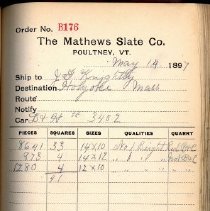 Order No. B176
The Mathews Slate Co.
POULTNEY, VT.
May 14 1897
Ship to
Destination Holyoke Mass
Route
Notify
Car D+H 3452
PIECES SQUARES SIZES QUALITIES QUARRY
8641 33 14x10 No 1
973 4 14x12 " "
1280 4 12x10 " "